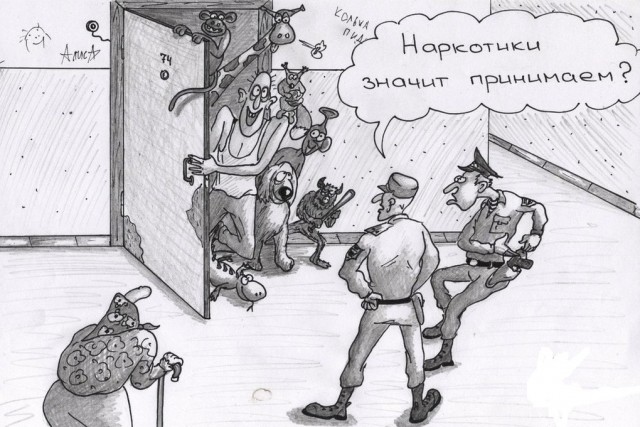 АЛИСА
74
КОЛЬКА
Наркотики
значит принимаем?